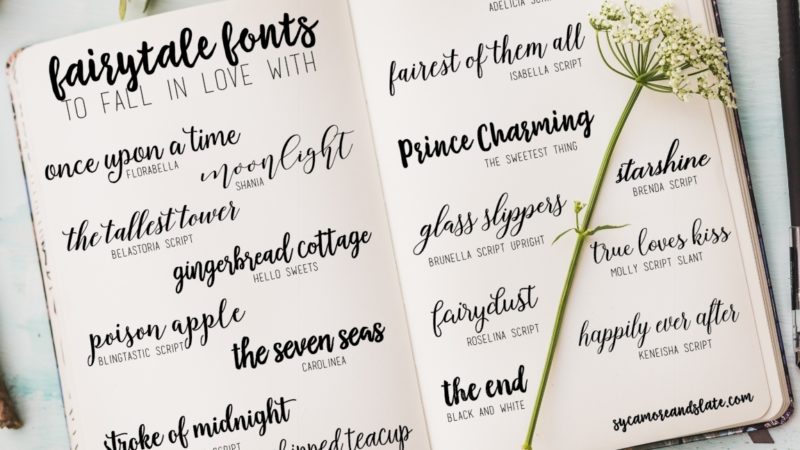 fairytale fonts
TO FALL IN LOVE WITH
once upon a time
FLORABELLA
moonlight
SHANIA
the tallest tower
BELASTORIA SCRIPT
gingerbread cottage
HELLO SWEETS
poison apple
BLINGTASTIC SCRIPT
the seven seas
CAROLINEA
stroke of midnight
SCRIPT
teacup
ADELICIA SCRIPT
fairest of them all
ISABELLA SCRIPT
Prince Charming
THE SWEETEST THING
starshine
BRENDA SCRIPT
glass slippers
BRUNELLA SCRIPT UPRIGHT
true loves kiss
MOLLY SCRIPT SLANT
fairydust
ROSELINA SCRIPT
happily ever after
KENEISHA SCRIPT
the end
BLACK AND WHITE
sycamoreandslate.com